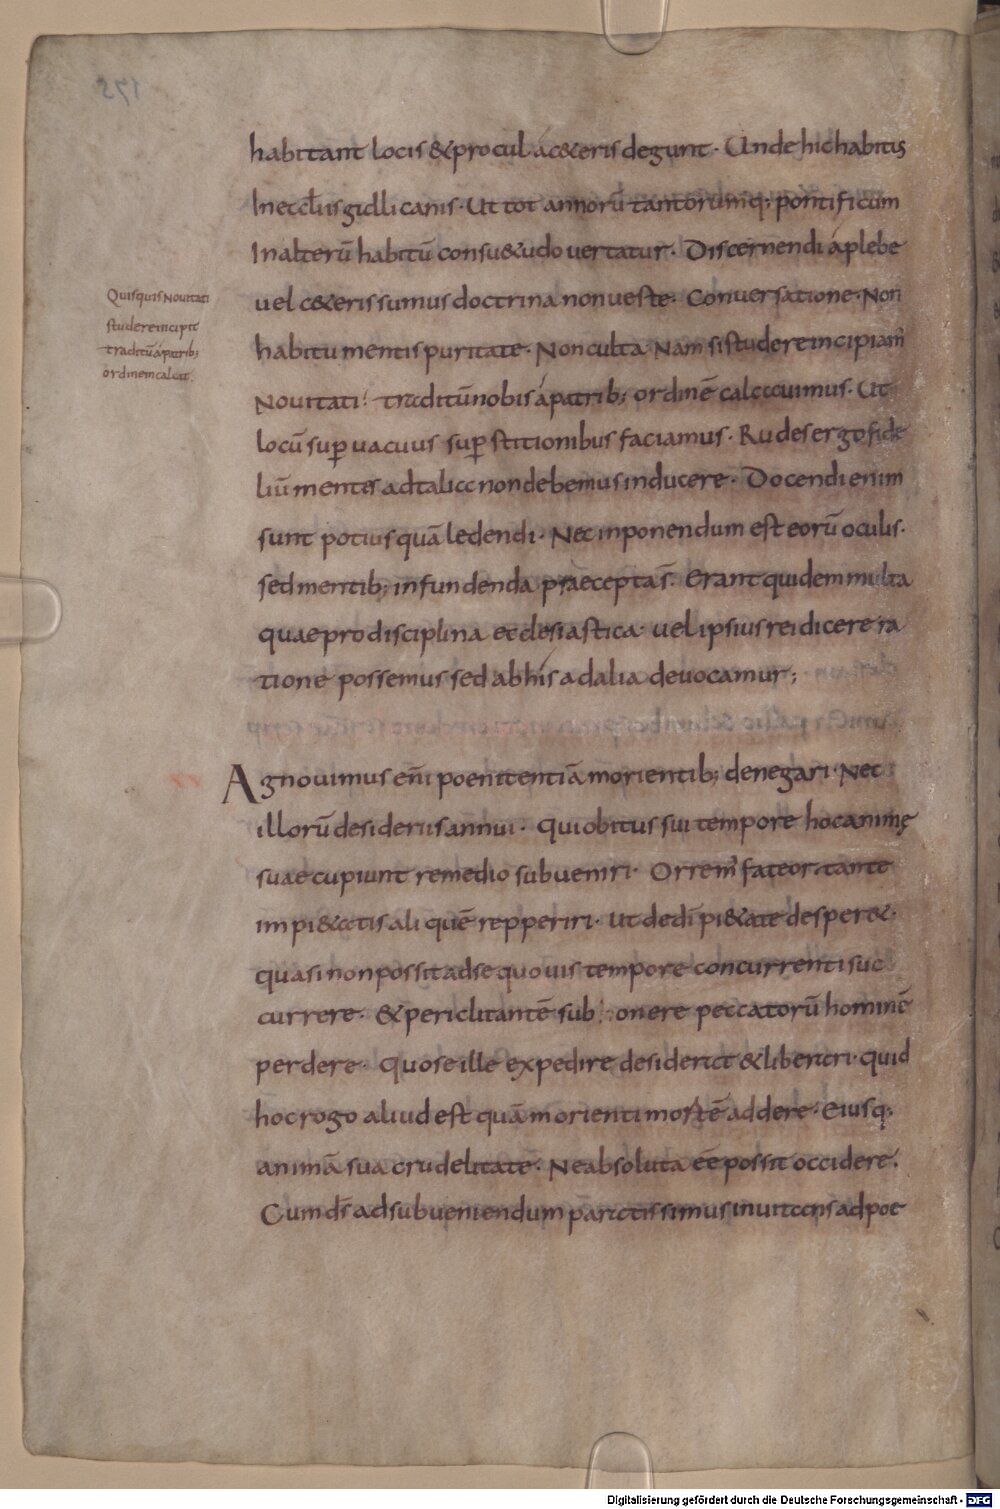 habitant locis & procul a c&eris degunt · Unde hic habitus
In eccl̅iis gallicanis · Ut tot annorū tantorumq; pontificum
In alterū habitū consu&udo vertatur · Discernendi a plebe
vel c&eris sumus doctrina non veste · Conversatione · Non
habitu mentis puritate · Non cultu · Nam si studere incipiam̅
Quisquis Novitati
studere incipit
traditū a patrib;
ordinem calcat
Novitati · traditū nobis a patrib; ordinē calcavimus · Ut
locū sup̲vacuus sup̲stitionibus faciamus · Rudes ergo fide
liū mentes ad talia non debemus inducere · Docendi enim
sunt potius quā ledendi · Nec inponendum est eorū oculis ·
sed mentib; infundenda praecepta s̅ · Erant quidem multa
quae pro disciplina ecclesiastica · vel ipsius rei dicere ra
tione possemus sed ab his ad alia devocamur;
Agnovimus eni̅ poenitentiā morientib; denegari · Nec
illorū desideriis annui · Qui obitus sui tempore hoc animę
suae cupiunt remedio subveniri · Orrem̅ fateor · tante
impi&atis aliquē repperiri · Ut de dei̅ pi&ate desper& ·
quasi non possit ad se quovis tempore concurrenti suc
currere · & periclitantē sub onere peccatorū hominē
perdere · Quo se ille expedire desiderat & liberari · quid
hoc rogo aliud est quā morienti mortē addere · Eiusq;
animā sua crudelitate · Ne absoluta ee̅ possit occidere ·
Cum ds̅ ad subveniendum paratissimus invitans ad poe
175
Digitalisierung gefördert durch die Deutsche Forschungsgemeinschaft - DFG